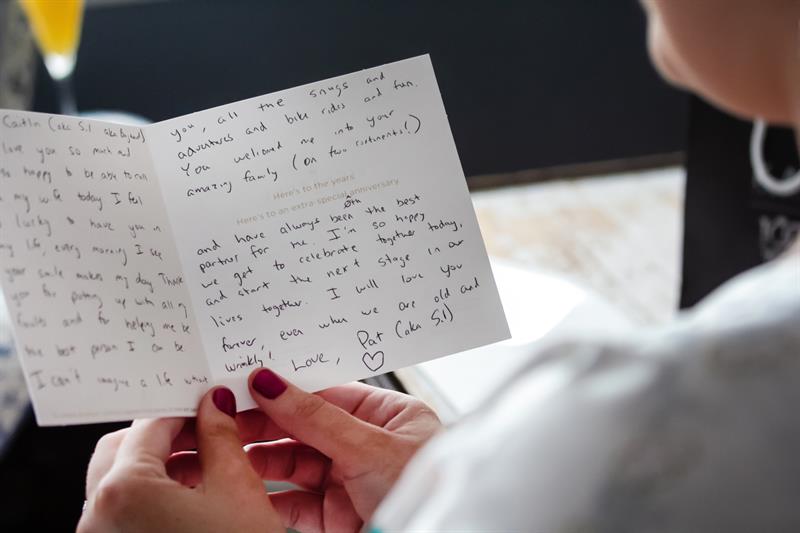 Caitlin (aka S.1 aka
love you so much and
so happy to be able to
my wife today I feel
lucky to have you in
my life, every morning I see
your smile makes my day. Thank
you for putting up with all my
faults and for helping me
the best person I can be
I can't imagine a life
you, all the snugs and
adventures and bike rides and fun.
You welcomed me into your
amazing family (on two continents!)
Here's to the years
Here's to an extra-special anniversary
and have always been the best
partner for me. I'm so happy
we get to celebrate together today,
and start the next stage in our
lives together. I will love you
forever, even when we are old and
wrinkly! Love, Pat (aka S.1)